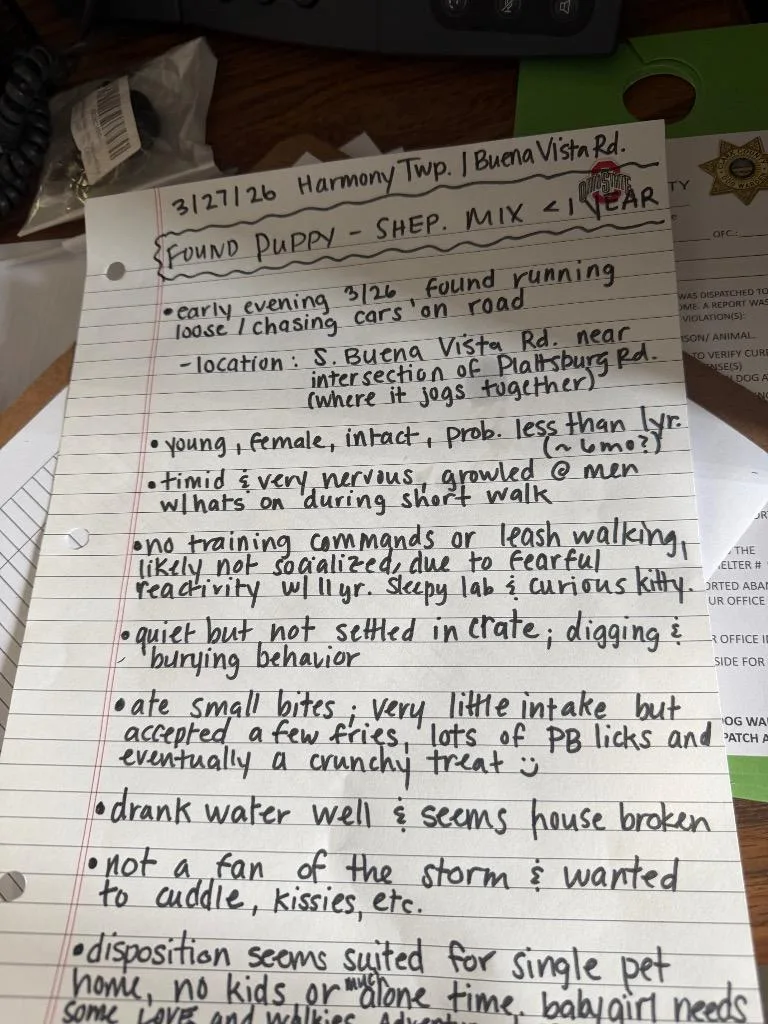 3/27/26 Harmony Twp. / Buena Vista Rd.
OHIO STATE
FOUND PUPPY - SHEP. MIX < 1 YEAR
• early evening 3/26, found running
loose / chasing cars on road
- location: S. Buena Vista Rd. near
intersection of Plattsburg Rd.
(where it jogs together)
• young, female, intact, prob. less than 1yr.
(~ 6mo?)
• timid & very nervous, growled @ men
w/hats on during short walk
• no training commands or leash walking,
likely not socialized, due to fearful
reactivity w/ 11yr. sleepy lab & curious kitty.
• quiet but not settled in crate; digging &
burying behavior
• ate small bites; very little intake but
accepted a few fries, lots of PB licks and
eventually a crunchy treat :)
• drank water well & seems house broken
• not a fan of the storm & wanted
to cuddle, kissies, etc.
• disposition seems suited for single pet
home, no kids or much alone time. babygirl needs
some LOVE and walkies.
TY
OFC.:
WAS DISPATCHED TO
A REPORT WAS
VIOLATION(S):
SON/ ANIMAL.
TO VERIFY
NSE(S)
DOG
THE
ELTER #
ORTED
UR OFFICE
R OFFICE
SIDE FOR
OG
PATCH